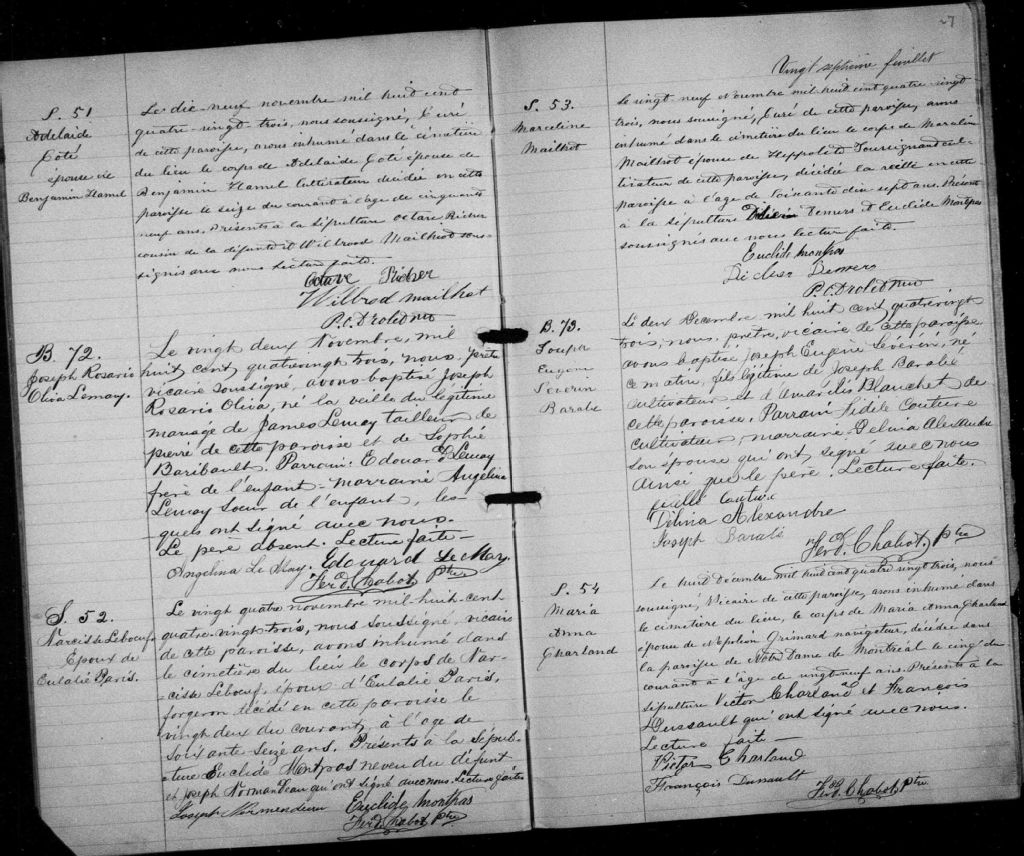 S. 51
Adelaide
Coté
épouse de
Benjamin Hamel
Le dix-neuf novembre mil huit cent
quatre-vingt trois, nous soussigné, Curé
de cette paroisse, avons inhumé dans le cimetière
du lieu le corps de Adelaide Coté épouse de
Benjamin Hamel Cultivateur décédée en cette
paroisse le seize du courant à l'âge de cinquante
neuf ans. Présents à la sépulture Octave Richer
cousin de la défunte et Wilbrod Mailhot sous-
signés avec nous Lecture faite.
Octave Richer
Wilbrod mailhot
P.O. Drolet
B. 72.
Joseph Rosario
Oliva Lemay.
Le vingt deux Novembre, mil
huit cent quatrevingt trois, nous, prêtre
vicaire soussigné, avons baptisé Joseph
Rosario Oliva, né la veille du légitime
mariage de James Lemay tailleur de
pierre de cette paroisse et de Sophie
Baribault. Parrain: Edouard Lemay
frère de l'enfant - marraine Angelina
Lemay Soeur de l'enfant, les
quels ont signé avec nous.
Le père absent. Lecture faite -
Angelina Le May. Edouard Le May.
Ferd. Chabot Ptre
S. 52.
Narcisse Leboeuf
Epoux de
Eulalie Paris.
Le vingt quatre novembre mil-huit-cent-
quatre-vingt-trois, nous soussigné, vicaire
de cette paroisse, avons inhumé dans
le cimetière du lieu le corps de Nar-
cisse Leboeuf, époux d'Eulalie Paris,
forgeron décédé en cette paroisse le
vingt deux du courant, à l'age de
soixante-seize ans. Présents à la sépul-
ture Euclide Montpas neveu du défunt
et Joseph Normandeau qui ont signé avec nous. Lecture faite
Joseph Normendeau Euclide monthas
Ferd. Chabot Ptre
27
Vingt septième feuillet
S. 53.
Marceline
Mailhot
Le vingt neuf Novembre mil huit cent quatre-vingt
trois, nous soussigné, Curé de cette paroisse, avons
inhumé dans le cimetière du lieu le corps de
Mailhot épouse de Toursignant cul-
tivateur de cette paroisse, décédée la veille en cette
paroisse à l'age de soixante dix sept ans. Présents
à la sépulture Demers et Euclide Montpas
soussignés avec nous lecture faite.
Euclide monthas
Demers
P.O. Drolet
B. 73.
Joseph
Eugène
Séverin
Barabé
Le deux Décembre mil huit cent quatrevingt
trois, nous, prêtre, vicaire de cette paroisse,
avons baptisé Joseph Eugène Séverin, né
ce matin, fils légitime de Joseph Barabé
cultivateur et d'Amarilis Blanchet de
cette paroisse. Parrain Fidèle Couture
cultivateur, marraine Delvina Alexandre
son épouse qui ont signé avec nous
ainsi que le père. Lecture faite.
fidèle Couture
Délina Alexandre
Joseph Barabé
Ferd. Chabot, Ptre
S. 54
Maria
Anna
Charland
Le huit Décembre mil huit cent quatre vingt trois, nous
soussigné, Vicaire de cette paroisse, avons inhumé dans
le cimetière du lieu, le corps de Maria Anna Charland
épouse de Napoléon Grimard navigateur, décédée dans
la paroisse de Notre Dame de Montréal le cinq du
courant à l'age de vingt-neuf ans. Présents à la
sépulture Victor Charland et François
Dussault qui ont signé avec nous.
Lecture faite -
Victor Charland
François Dussault
Ferd. Chabot, Ptre